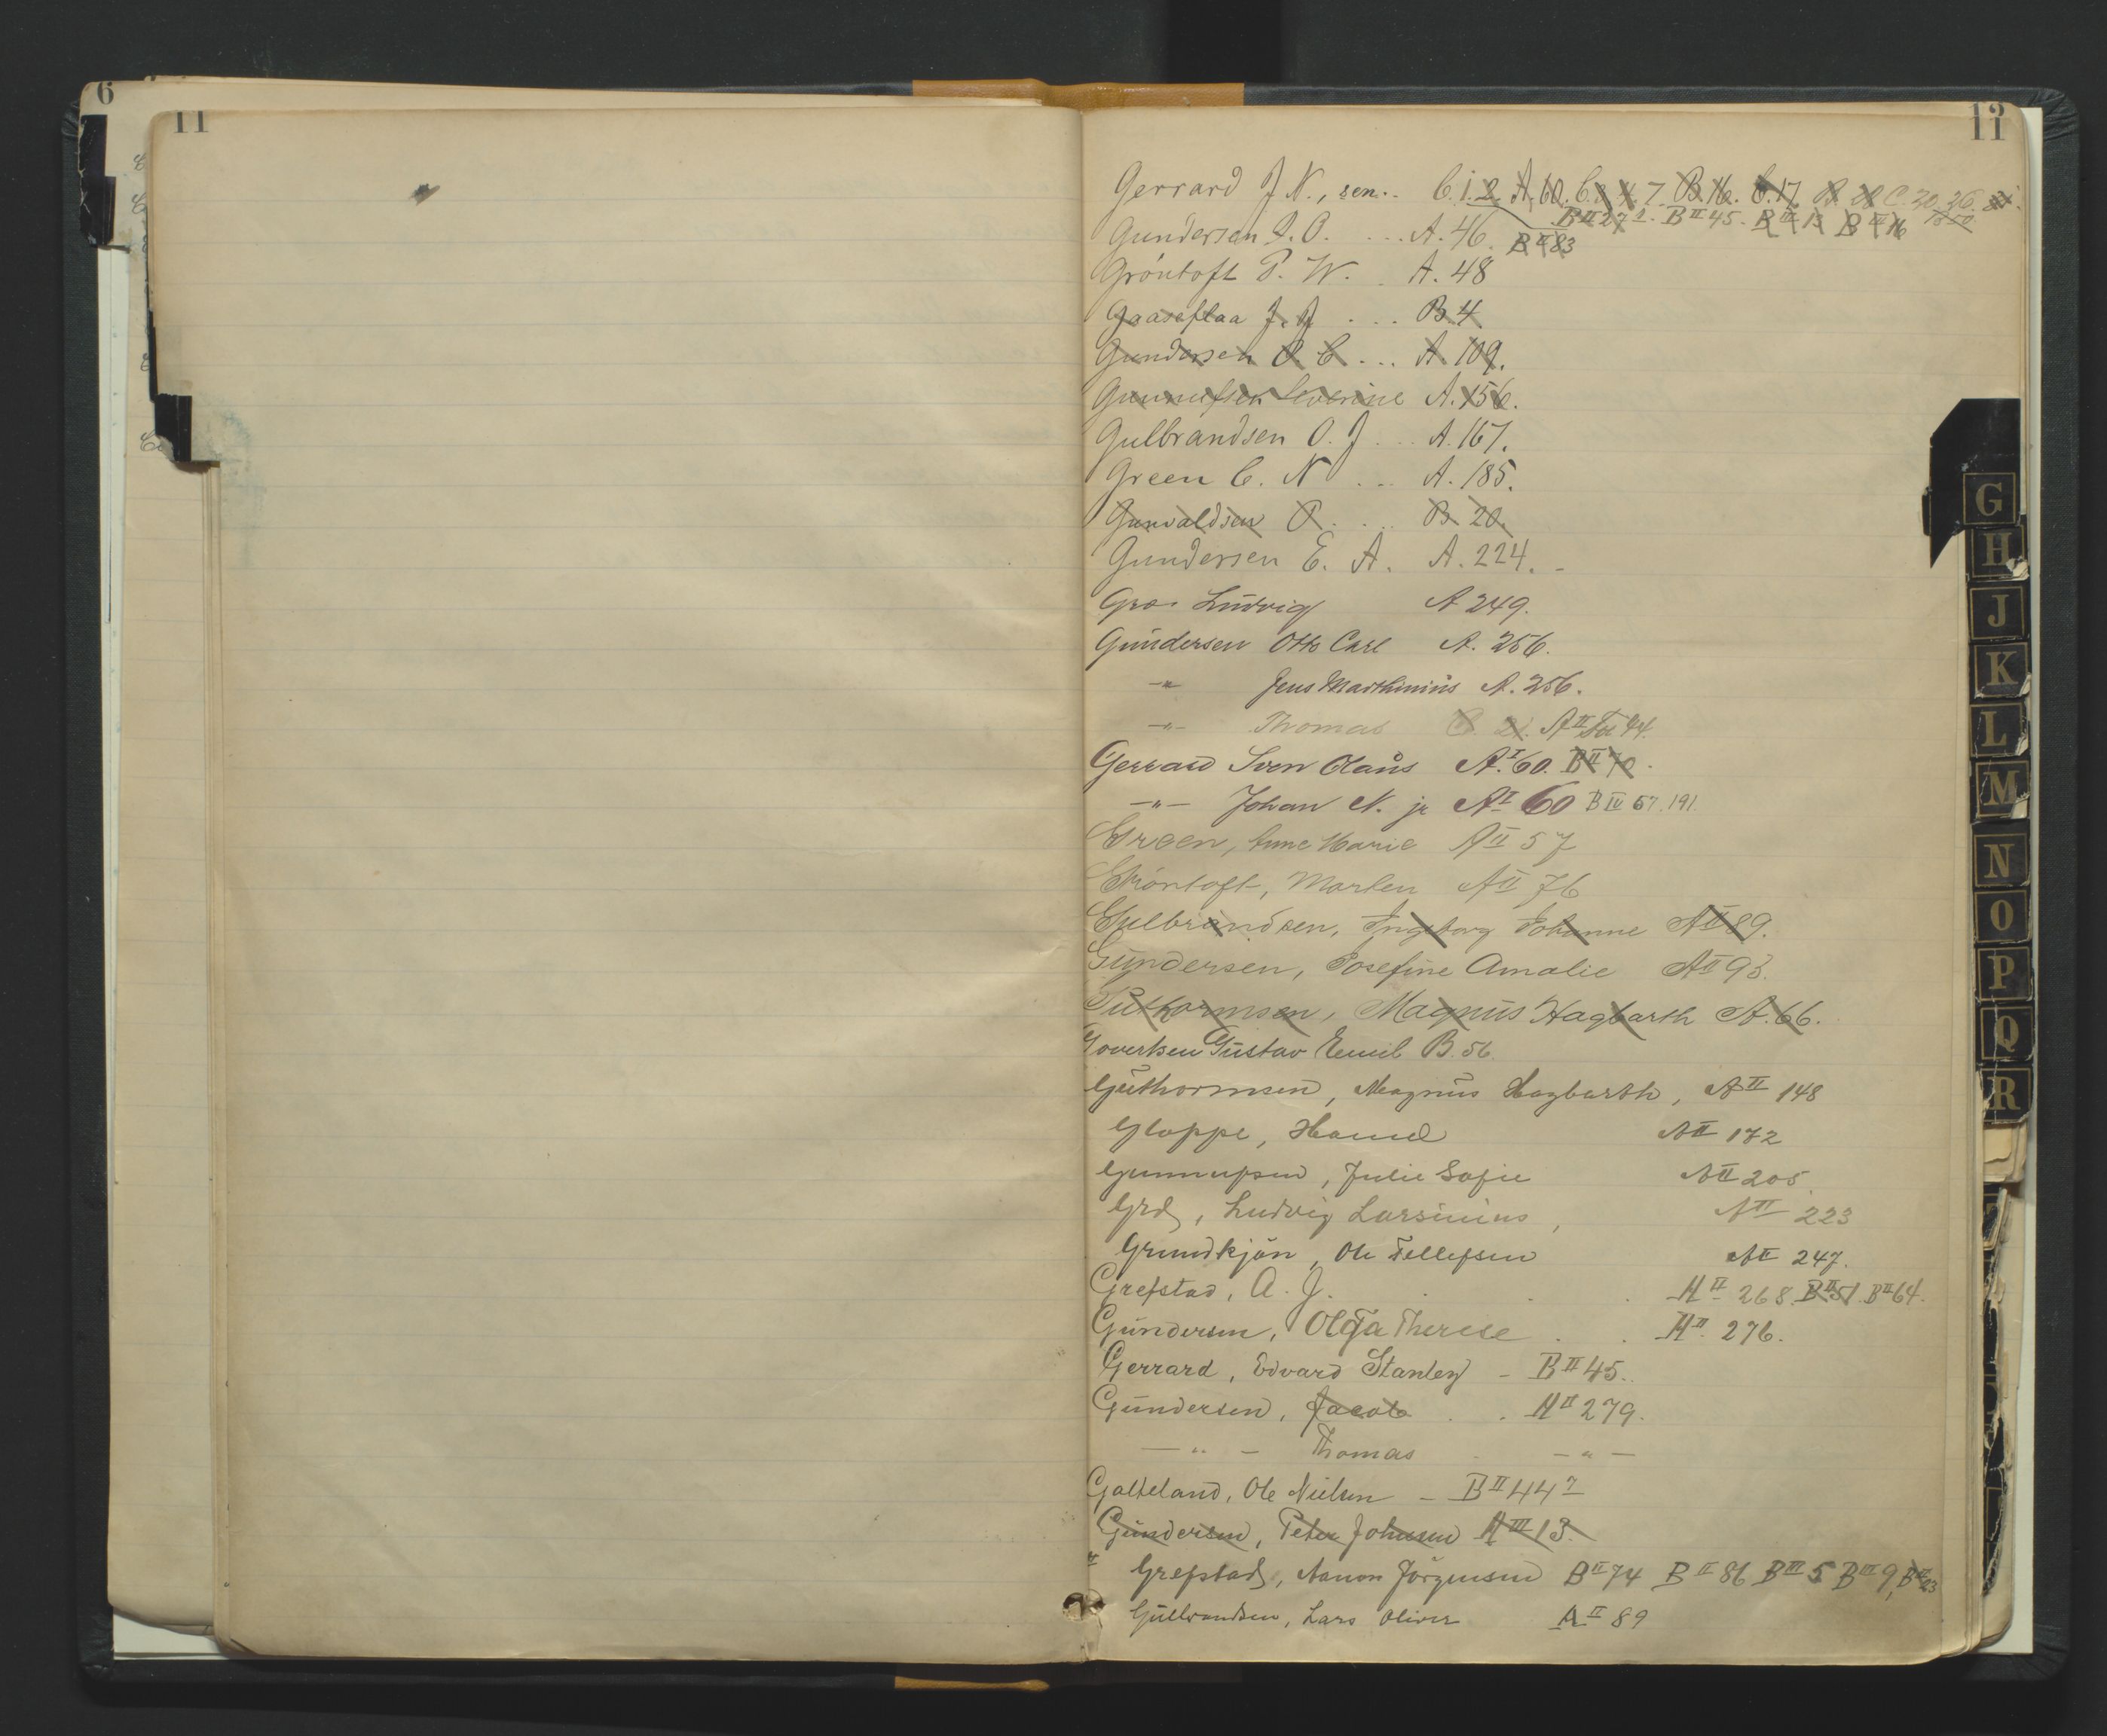 6
11
12
11
Gerrard J. N., sen. . C. 1. 2. A. 60. C. 7. B. 16. C. 17. C. 20. 26.
B II 27 B II 45. B III 13 B III 16
Gundersen I. O. ... A. 46. B II 83
Gröntoft P. W. . A. 48
Gaaseflaa J. J. ... B. 4
Gundersen O. C. ... A. 109.
Gunnufsen Severine A. 156.
Gulbrandsen O. J. .. A. 167.
Green C. N ... A. 185.
Gunvaldsen P. ... B. 20.
Gundersen E. A. A. 224. -
Gros Ludvig A 249.
Gundersen Otto Carl A. 256.
-"- Jens Marthinius A. 256.
-"- Thomas C. 21. A II 44.
Gerrard Sven Olaus A I. 60. B II 70.
-"- Johan N. jr A I 60 B IV 57. 191.
Green, Anne Marie A II 57
Gröntoft, Marken A II 76
Gulbrandsen, Ingeborg Johanne A II 89.
Gundersen, Josefine Amalie A II 93.
Guthormsen, Magnus Hagbarth A. 66.
Govertsen Gustav Emil B. 56.
Guthormsen, Magnus Hagbarth, A II 148
Gloppe, Hamel A II 172
Gunnufsen, Julie Sofie A II 205.
Grd, Ludvig Larsinius, A II 223
Grundkjön, Ole Tellefsen A II 247.
Grefstad, A. J. . . . A II 268. B II 51. B II 64.
Gundersen, Olga Therese . . A II 276.
Gerrard, Edvard Stanley - B II 45.
Gundersen, Jacob . . A II 279.
-"- Thomas . -"-
Galteland, Ole Nielsen - B II 44
Gundersen, Peter Johnsen A III 13.
Grefstad, Aanon Jörgensen B II 74 B II 86 B III 5 B III 9, B III 23
Gulbrandsen, Lars Oliver A II 89
G
H
J
K
L
M
N
O
P
Q
R